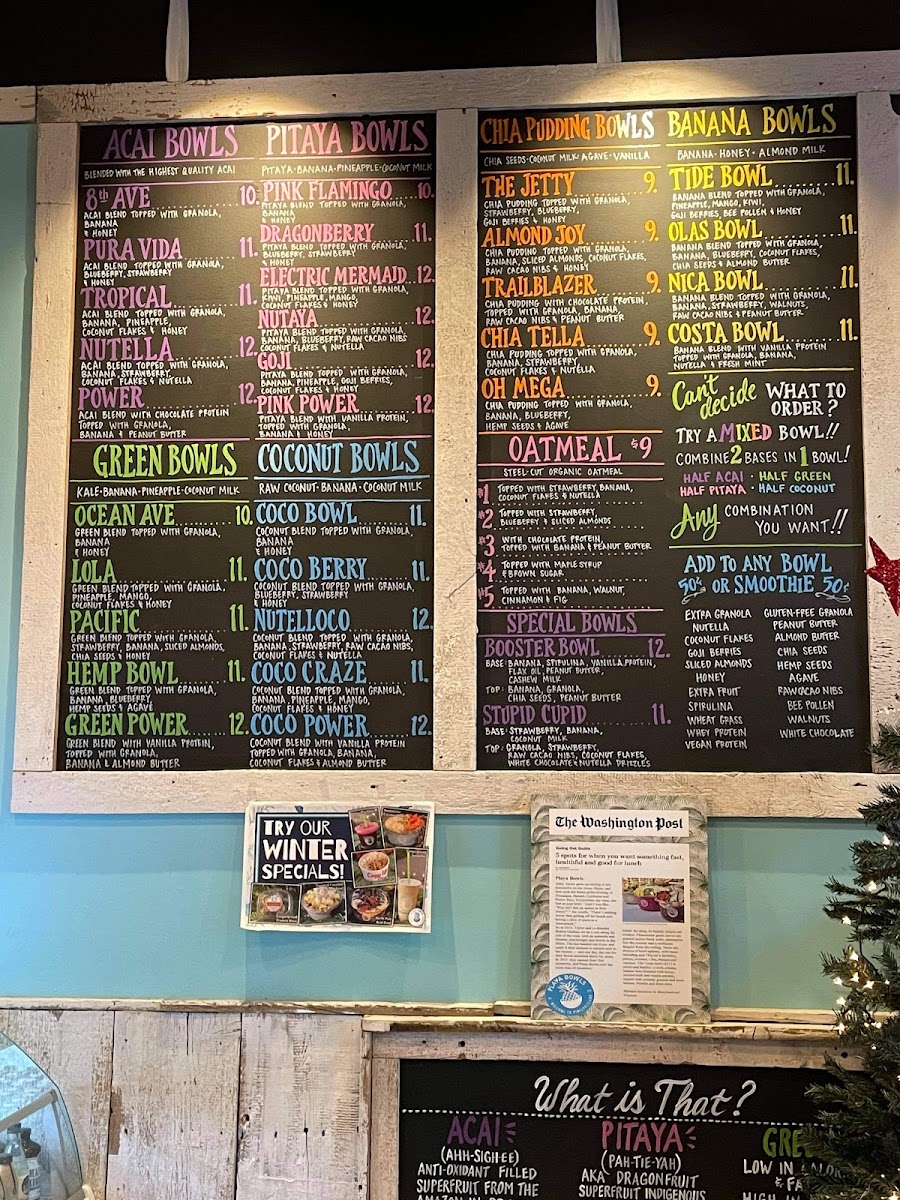 ACAI BOWLS
BLENDED WITH THE HIGHEST QUALITY ACAI
8th AVE 10.
ACAI BLEND TOPPED WITH GRANOLA,
BANANA
& HONEY
PURA VIDA 11.
ACAI BLEND TOPPED WITH GRANOLA,
BLUEBERRY, STRAWBERRY
& HONEY
TROPICAL 11.
ACAI BLEND TOPPED WITH GRANOLA,
BANANA, PINEAPPLE,
COCONUT FLAKES & HONEY
NUTELLA 12.
ACAI BLEND TOPPED WITH GRANOLA,
BANANA, STRAWBERRY
COCONUT FLAKES & NUTELLA
POWER 12.
ACAI BLEND WITH CHOCOLATE PROTEIN
TOPPED WITH GRANOLA,
BANANA & PEANUT BUTTER
PITAYA BOWLS
PITAYA·BANANA·PINEAPPLE·COCONUT MILK
PINK FLAMINGO 10.
PITAYA BLEND TOPPED WITH GRANOLA,
BANANA
& HONEY
DRAGONBERRY 11.
PITAYA BLEND TOPPED WITH GRANOLA,
BLUEBERRY, STRAWBERRY
& HONEY
ELECTRIC MERMAID 12.
PITAYA BLEND TOPPED WITH GRANOLA,
KIWI, PINEAPPLE, MANGO,
COCONUT FLAKES & HONEY
NUTAYA 12.
PITAYA BLEND TOPPED WITH GRANOLA,
BANANA, BLUEBERRY, RAW CACAO NIBS
COCONUT FLAKES & NUTELLA
GOJI 12.
PITAYA BLEND TOPPED WITH GRANOLA,
BANANA, PINEAPPLE, GOJI BERRIES,
COCONUT FLAKES & HONEY
PINK POWER 12.
PITAYA BLEND WITH VANILLA PROTEIN,
TOPPED WITH GRANOLA,
BANANA & HONEY
GREEN BOWLS
KALE·BANANA·PINEAPPLE·COCONUT MILK
OCEAN AVE 10.
GREEN BLEND TOPPED WITH GRANOLA,
BANANA
& HONEY
LOLA 11.
GREEN BLEND TOPPED WITH GRANOLA,
PINEAPPLE, MANGO,
COCONUT FLAKES & HONEY
PACIFIC 11.
GREEN BLEND TOPPED WITH GRANOLA,
STRAWBERRY, BANANA, SLICED ALMONDS,
CHIA SEEDS & HONEY
HEMP BOWL 11.
GREEN BLEND TOPPED WITH GRANOLA,
BANANA, BLUEBERRY,
HEMP SEEDS & AGAVE
GREEN POWER 12.
GREEN BLEND WITH VANILLA PROTEIN,
TOPPED WITH GRANOLA,
BANANA & ALMOND BUTTER
COCONUT BOWLS
RAW COCONUT·BANANA·COCONUT MILK
COCO BOWL 11.
COCONUT BLEND TOPPED WITH GRANOLA,
BANANA
& HONEY
COCO BERRY 11.
COCONUT BLEND TOPPED WITH GRANOLA,
BLUEBERRY, STRAWBERRY
& HONEY
NUTELLOCO 12.
COCONUT BLEND TOPPED WITH GRANOLA,
BANANA, STRAWBERRY, RAW CACAO NIBS,
COCONUT FLAKES & NUTELLA
COCO CRAZE 11.
COCONUT BLEND TOPPED WITH GRANOLA,
BANANA, PINEAPPLE, MANGO,
COCONUT FLAKES & HONEY
COCO POWER 12.
COCONUT BLEND WITH VANILLA PROTEIN
TOPPED WITH GRANOLA, BANANA,
COCONUT FLAKES & ALMOND BUTTER
CHIA PUDDING BOWLS
CHIA SEEDS·COCONUT MILK·AGAVE·VANILLA
THE JETTY 9.
CHIA PUDDING TOPPED WITH GRANOLA,
STRAWBERRY, BLUEBERRY,
GOJI BERRIES & HONEY
ALMOND JOY 9.
CHIA PUDDING TOPPED WITH GRANOLA,
BANANA, SLICED ALMONDS, COCONUT FLAKES,
RAW CACAO NIBS & HONEY
TRAILBLAZER 9.
CHIA PUDDING WITH CHOCOLATE PROTEIN,
TOPPED WITH GRANOLA, BANANA,
RAW CACAO NIBS & PEANUT BUTTER
CHIA TELLA 9.
CHIA PUDDING TOPPED WITH GRANOLA,
BANANA, STRAWBERRY,
COCONUT FLAKES & NUTELLA
OH MEGA 9.
CHIA PUDDING TOPPED WITH GRANOLA,
BANANA, BLUEBERRY,
HEMP SEEDS & AGAVE
OATMEAL $9
STEEL-CUT ORGANIC OATMEAL
#1 TOPPED WITH STRAWBERRY, BANANA,
COCONUT FLAKES & NUTELLA
#2 TOPPED WITH STRAWBERRY,
BLUEBERRY & SLICED ALMONDS
#3 WITH CHOCOLATE PROTEIN,
TOPPED WITH BANANA & PEANUT BUTTER
#4 TOPPED WITH MAPLE SYRUP
& BROWN SUGAR
#5 TOPPED WITH BANANA, WALNUT,
CINNAMON & FIG
SPECIAL BOWLS
BOOSTER BOWL 12.
BASE: BANANA, SPIRULINA, VANILLA PROTEIN,
FLAX OIL, PEANUT BUTTER,
CASHEW MILK
TOP: BANANA, GRANOLA,
CHIA SEEDS, PEANUT BUTTER
STUPID CUPID 11.
BASE: STRAWBERRY, BANANA,
COCONUT MILK
TOP: GRANOLA, STRAWBERRY,
RAW CACAO NIBS, COCONUT FLAKES,
WHITE CHOCOLATE & NUTELLA DRIZZLE'S
BANANA BOWLS
BANANA·HONEY·ALMOND MILK
TIDE BOWL 11.
BANANA BLEND TOPPED WITH GRANOLA,
PINEAPPLE, MANGO, KIWI,
GOJI BERRIES, BEE POLLEN & HONEY
OLAS BOWL 11.
BANANA BLEND TOPPED WITH GRANOLA,
BANANA, BLUEBERRY, COCONUT FLAKES,
CHIA SEEDS & ALMOND BUTTER
NICA BOWL 11.
BANANA BLEND TOPPED WITH GRANOLA,
BANANA, STRAWBERRY, WALNUTS,
RAW CACAO NIBS & PEANUT BUTTER
COSTA BOWL 11.
BANANA BLEND WITH VANILLA PROTEIN
TOPPED WITH GRANOLA, BANANA,
NUTELLA & FRESH MINT
Can't decide WHAT TO
ORDER?
TRY A MIXED BOWL!!
COMBINE 2 BASES IN 1 BOWL!
HALF ACAI · HALF GREEN
HALF PITAYA · HALF COCONUT
Any COMBINATION
YOU WANT!!
ADD TO ANY BOWL
50¢ OR SMOOTHIE 50¢
EXTRA GRANOLA
NUTELLA
COCONUT FLAKES
GOJI BERRIES
SLICED ALMONDS
HONEY
EXTRA FRUIT
SPIRULINA
WHEAT GRASS
WHEY PROTEIN
VEGAN PROTEIN
GLUTEN-FREE GRANOLA
PEANUT BUTTER
ALMOND BUTTER
CHIA SEEDS
HEMP SEEDS
AGAVE
RAW CACAO NIBS
BEE POLLEN
WALNUTS
WHITE CHOCOLATE
TRY OUR
WINTER
SPECIALS!
The Washington Post
Going Out Guide
5 spots for when you want something fast,
healthful and good for lunch
Playa Bowls
PLAYA BOWLS
What is That?
ACAI
(AHH-SIGH-EE)
ANTI-OXIDANT FILLED
SUPERFRUIT FROM THE
AMAZON IN
PITAYA
(PAH-TIE-YAH)
AKA DRAGONFRUIT
SUPERFRUIT INDIGENOUS
GRE
LOW IN
& FA